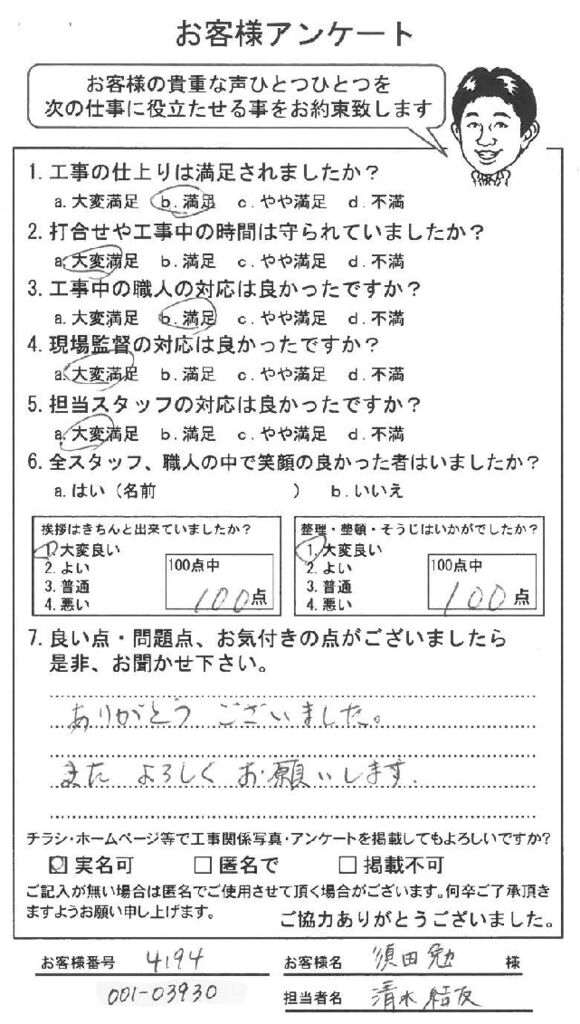 お客様アンケート
お客様の貴重な声ひとつひとつを
次の仕事に役立たせる事をお約束致します
1. 工事の仕上りは満足されましたか？
a. 大変満足 b. 満足 c. やや満足 d. 不満
2. 打合せや工事中の時間は守られていましたか？
a. 大変満足 b. 満足 c. やや満足 d. 不満
3. 工事中の職人の対応は良かったですか？
a. 大変満足 b. 満足 c. やや満足 d. 不満
4. 現場監督の対応は良かったですか？
a. 大変満足 b. 満足 c. やや満足 d. 不満
5. 担当スタッフの対応は良かったですか？
a. 大変満足 b. 満足 c. やや満足 d. 不満
6. 全スタッフ、職人の中で笑顔の良かった者はいましたか？
a. はい（名前 ） b. いいえ
挨拶はきちんと出来ていましたか？
1. 大変良い
2. よい
3. 普通
4. 悪い
100点中
100点
整理・整頓・そうじはいかがでしたか？
1. 大変良い
2. よい
3. 普通
4. 悪い
100点中
100点
7. 良い点・問題点、お気付きの点がございましたら
是非、お聞かせ下さい。
ありがとう ございました。
また よろしく お願いします.
チラシ・ホームページ等で工事関係写真・アンケートを掲載してもよろしいですか？
実名可 匿名で 掲載不可
ご記入が無い場合は匿名でご使用させて頂く場合がございます。何卒ご了承頂き
ますようお願い申し上げます。
ご協力ありがとうございました。
お客様番号 4194 お客様名 須田勉 様
001-03930 担当者名 清水結友